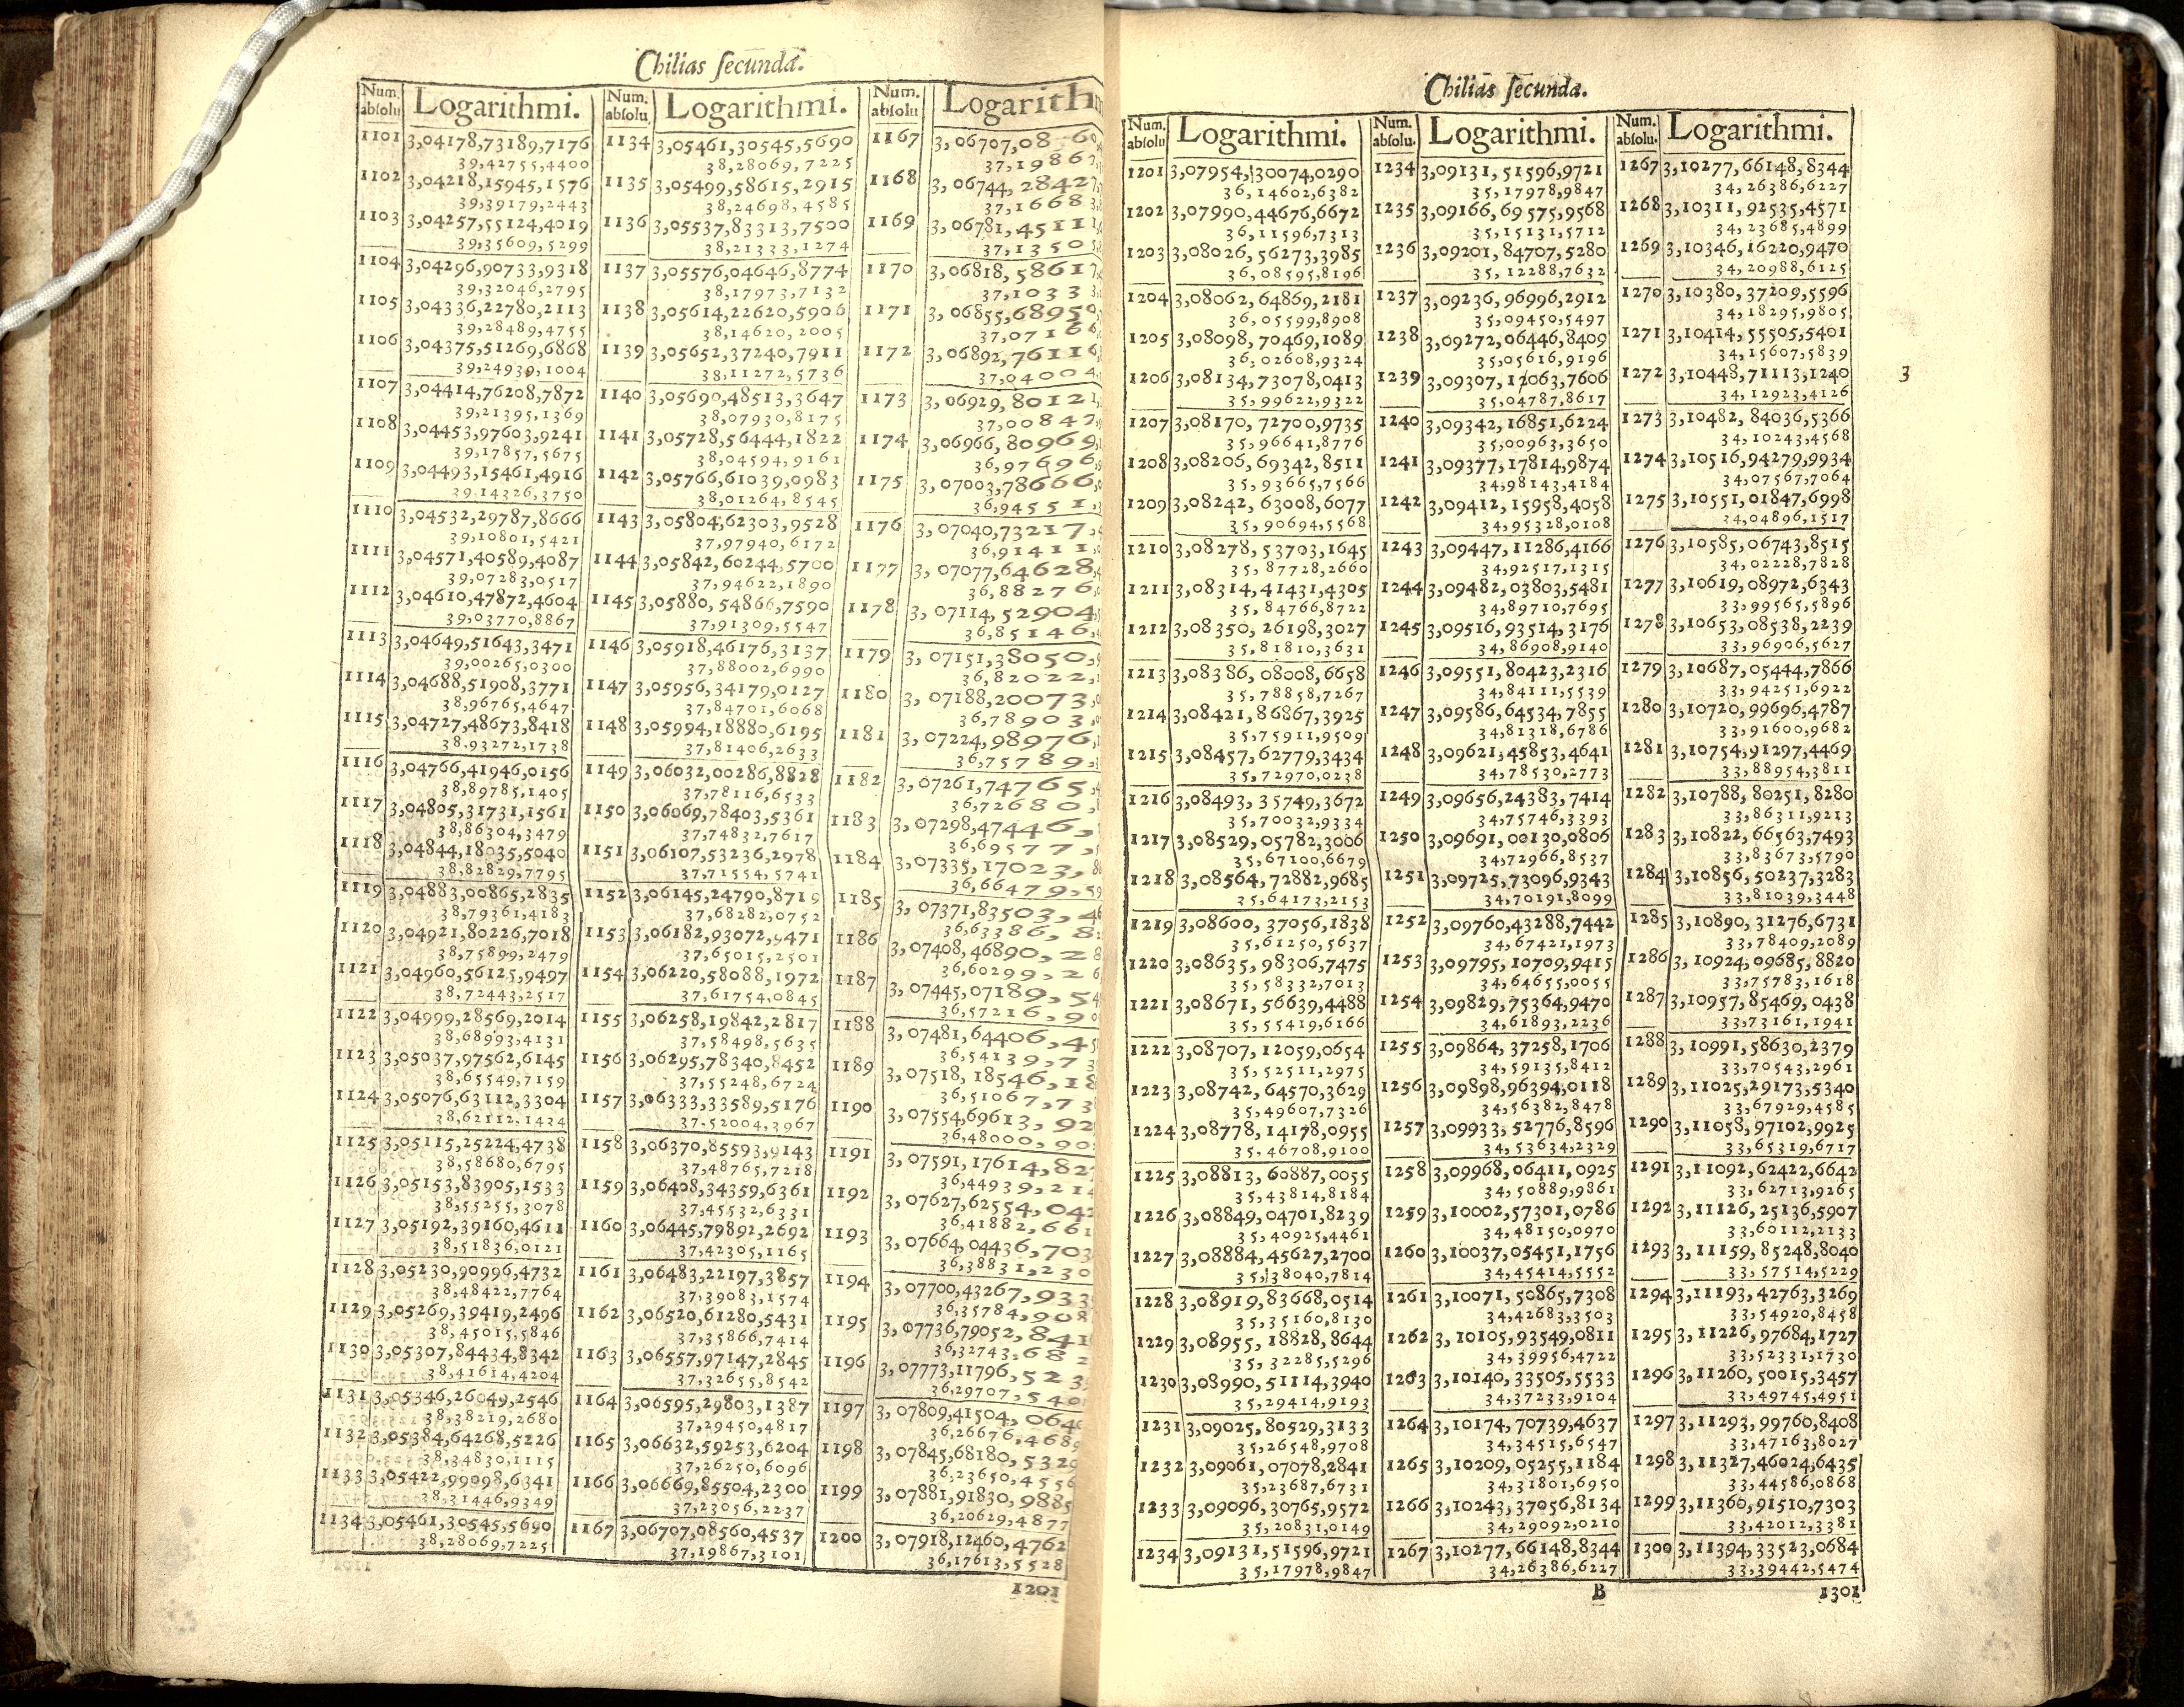 Chilias secunda.
Num. absolu Logarithmi.
1101 3,04178,73189,7176
39,42755,4400
1102 3,04218,15945,1576
39,39179,2443
1103 3,04257,55124,4019
39,35609,5299
1104 3,04296,90733,9318
39,32046,2795
1105 3,04336,22780,2113
39,28489,4755
1106 3,04375,51269,6868
39,24939,1004
1107 3,04414,76208,7872
39,21395,1369
1108 3,04453,97603,9241
39,17857,5675
1109 3,04493,15461,4916
39,14326,3750
1110 3,04532,29787,8666
39,10801,5421
1111 3,04571,40589,4087
39,07283,0517
1112 3,04610,47872,4604
39,03770,8867
1113 3,04649,51643,3471
39,00265,0300
1114 3,04688,51908,3771
38,96765,4647
1115 3,04727,48673,8418
38,93272,1738
1116 3,04766,41946,0156
38,89785,1405
1117 3,04805,31731,1561
38,86304,3479
1118 3,04844,18035,5040
38,82829,7795
1119 3,04883,00865,2835
38,79361,4183
1120 3,04921,80226,7018
38,75899,2479
1121 3,04960,56125,9497
38,72443,2517
1122 3,04999,28569,2014
38,68993,4131
1123 3,05037,97562,6145
38,65549,7159
1124 3,05076,63112,3304
38,62112,1434
1125 3,05115,25224,4738
38,58680,6795
1126 3,05153,83905,1533
38,55255,3078
1127 3,05192,39160,4611
38,51836,0121
1128 3,05230,90996,4732
38,48422,7764
1129 3,05269,39419,2496
38,45015,5846
1130 3,05307,84434,8342
38,41614,4204
1131 3,05346,26049,2546
38,38219,2680
1132 3,05384,64268,5226
38,34830,1115
1133 3,05422,99098,6341
38,31446,9349
1134 3,05461,30545,5690
38,28069,7225
Num. absolu. Logarithmi.
1134 3,05461,30545,5690
38,28069,7225
1135 3,05499,58615,2915
38,24698,4585
1136 3,05537,83313,7500
38,21333,1274
1137 3,05576,04646,8774
38,17973,7132
1138 3,05614,22620,5906
38,14620,2005
1139 3,05652,37240,7911
38,11272,5736
1140 3,05690,48513,3647
38,07930,8175
1141 3,05728,56444,1822
38,04594,9161
1142 3,05766,61039,0983
38,01264,8545
1143 3,05804,62303,9528
37,97940,6172
1144 3,05842,60244,5700
37,94622,1890
1145 3,05880,54866,7590
37,91309,5547
1146 3,05918,46176,3137
37,88002,6990
1147 3,05956,34179,0127
37,84701,6068
1148 3,05994,18880,6195
37,81406,2633
1149 3,06032,00286,8828
37,78116,6533
1150 3,06069,78403,5361
37,74832,7617
1151 3,06107,53236,2978
37,71554,5741
1152 3,06145,24790,8719
37,68282,0752
1153 3,06182,93072,9471
37,65015,2501
1154 3,06220,58088,1972
37,61754,0845
1155 3,06258,19842,2817
37,58498,5635
1156 3,06295,78340,8452
37,55248,6724
1157 3,06333,33589,5176
37,52004,3967
1158 3,06370,85593,9143
37,48765,7218
1159 3,06408,34359,6361
37,45532,6331
1160 3,06445,79892,2692
37,42305,1165
1161 3,06483,22197,3857
37,39083,1574
1162 3,06520,61280,5431
37,35866,7414
1163 3,06557,97147,2845
37,32655,8542
1164 3,06595,29803,1387
37,29450,4817
1165 3,06632,59253,6204
37,26250,6096
1166 3,06669,85504,2300
37,23056,2237
1167 3,06707,08560,4537
37,19867,3101
Num. absolu
1167 3,06707,08
37,1986
1168 3,06744,2842
37,1668
1169 3,06781,4511
37,1350
1170 3,06818,5861
37,1033
1171 3,06855,6895
37,0716
1172 3,06892,7611
37,0400
1173 3,06929,8012
37,0084
1174 3,06966,80969
36,97696
1175 3,07003,78666
36,9455
1176 3,07040,73217
36,9141
1177 3,07077,64628
36,88276
1178 3,07114,52904
36,85146
1179 3,07151,38050
36,82022
1180 3,07188,20073
36,78903
1181 3,07224,98976
36,75789
1182 3,07261,74765
36,72680
1183 3,07298,47446
36,69577
1184 3,07335,17023
36,66479
1185 3,07371,83503
36,63386
1186 3,07408,46890
36,60299
1187 3,07445,07189
36,57216
1188 3,07481,64406
36,54139
1189 3,07518,18546
36,51067
1190 3,07554,69613
36,48000
1191 3,07591,17614
36,44939
1192 3,07627,62554
36,41882
1193 3,07664,04436
36,38831
1194 3,07700,43267
36,35784
1195 3,07736,79052
36,32743
1196 3,07773,11796
36,29707
1197 3,07809,41504
36,26676
1198 3,07845,68180
36,23650
1199 3,07881,91830,9885
36,20629,4877
1200 3,07918,12460,4762
36,17613,5528
1201
Chilias secunda.
Num. absolu Logarithmi.
1201 3,07954,30074,0290
36,14602,6382
1202 3,07990,44676,6672
36,11596,7313
1203 3,08026,56273,3985
36,08595,8196
1204 3,08062,64869,2181
36,05599,8908
1205 3,08098,70469,1089
36,02608,9324
1206 3,08134,73078,0413
35,99622,9322
1207 3,08170,72700,9735
35,96641,8776
1208 3,08206,69342,8511
35,93665,7566
1209 3,08242,63008,6077
35,90694,5568
1210 3,08278,53703,1645
35,87728,2660
1211 3,08314,41431,4305
35,84766,8722
1212 3,08350,26198,3027
35,81810,3631
1213 3,08386,08008,6658
35,78858,7267
1214 3,08421,86867,3925
35,75911,9509
1215 3,08457,62779,3434
35,72970,0238
1216 3,08493,35749,3672
35,70032,9334
1217 3,08529,05782,3006
35,67100,6679
1218 3,08564,72882,9685
35,64173,2153
1219 3,08600,37056,1838
35,61250,5637
1220 3,08635,98306,7475
35,58332,7013
1221 3,08671,56639,4488
35,55419,6166
1222 3,08707,12059,0654
35,52511,2975
1223 3,08742,64570,3629
35,49607,7326
1224 3,08778,14178,0955
35,46708,9100
1225 3,08813,60887,0055
35,43814,8184
1226 3,08849,04701,8239
35,40925,4461
1227 3,08884,45627,2700
35,38040,7814
1228 3,08919,83668,0514
35,35160,8130
1229 3,08955,18828,8644
35,32285,5296
1230 3,08990,51114,3940
35,29414,9193
1231 3,09025,80529,3133
35,26548,9708
1232 3,09061,07078,2841
35,23687,6731
1233 3,09096,30765,9572
35,20831,0149
1234 3,09131,51596,9721
35,17978,9847
Num. absolu. Logarithmi.
1234 3,09131,51596,9721
35,17978,9847
1235 3,09166,69575,9568
35,15131,5712
1236 3,09201,84707,5280
35,12288,7632
1237 3,09236,96996,2912
35,09450,5497
1238 3,09272,06446,8409
35,05616,9196
1239 3,09307,12063,7606
35,04787,8617
1240 3,09342,16851,6224
35,00963,3650
1241 3,09377,17814,9874
34,98143,4184
1242 3,09412,15958,4058
34,95328,0108
1243 3,09447,11286,4166
34,92517,1315
1244 3,09482,03803,5481
34,89710,7695
1245 3,09516,93514,3176
34,86908,9140
1246 3,09551,80423,2316
34,84111,5539
1247 3,09586,64534,7855
34,81318,6786
1248 3,09621,45853,4641
34,78530,2773
1249 3,09656,24383,7414
34,75746,3393
1250 3,09691,00130,0806
34,72966,8537
1251 3,09725,73096,9343
34,70191,8099
1252 3,09760,43288,7442
34,67421,1973
1253 3,09795,10709,9415
34,64655,0055
1254 3,09829,75364,9470
34,61893,2236
1255 3,09864,37258,1706
34,59135,8412
1256 3,09898,96394,0118
34,56382,8478
1257 3,09933,52776,8596
34,53634,2329
1258 3,09968,06411,0925
34,50889,9861
1259 3,10002,57301,0786
34,48150,0970
1260 3,10037,05451,1756
34,45414,5552
1261 3,10071,50865,7308
34,42683,3503
1262 3,10105,93549,0811
34,39956,4722
1263 3,10140,33505,5533
34,37233,9104
1264 3,10174,70739,4637
34,34515,6547
1265 3,10209,05255,1184
34,31801,6950
1266 3,10243,37056,8134
34,29092,0210
1267 3,10277,66148,8344
34,26386,6227
Num. absolu. Logarithmi.
1267 3,10277,66148,8344
34,26386,6227
1268 3,10311,92535,4571
34,23685,4899
1269 3,10346,16220,9470
34,20988,6125
1270 3,10380,37209,5596
34,18295,9805
1271 3,10414,55505,5401
34,15607,5839
1272 3,10448,71113,1240
34,12923,4126
1273 3,10482,84036,5366
34,10243,4568
1274 3,10516,94279,9934
34,07567,7064
1275 3,10551,01847,6998
34,04896,1517
1276 3,10585,06743,8515
34,02228,7828
1277 3,10619,08972,6343
33,99565,5896
1278 3,10653,08538,2239
33,96906,5627
1279 3,10687,05444,7866
33,94251,6922
1280 3,10720,99696,4787
33,91600,9682
1281 3,10754,91297,4469
33,88954,3811
1282 3,10788,80251,8280
33,86311,9213
1283 3,10822,66563,7493
33,83673,5790
1284 3,10856,50237,3283
33,81039,3448
1285 3,10890,31276,6731
33,78409,2089
1286 3,10924,09685,8820
33,75783,1618
1287 3,10957,85469,0438
33,73161,1941
1288 3,10991,58630,2379
33,70543,2961
1289 3,11025,29173,5340
33,67929,4585
1290 3,11058,97102,9925
33,65319,6717
1291 3,11092,62422,6642
33,62713,9265
1292 3,11126,25136,5907
33,60112,2133
1293 3,11159,85248,8040
33,57514,5229
1294 3,11193,42763,3269
33,54920,8458
1295 3,11226,97684,1727
33,52331,1730
1296 3,11260,50015,3457
33,49745,4951
1297 3,11293,99760,8408
33,47163,8027
1298 3,11327,46024,6435
33,44586,0868
1299 3,11360,91510,7303
33,42012,3381
1300 3,11394,33523,0684
33,39442,5474
3
B
1301